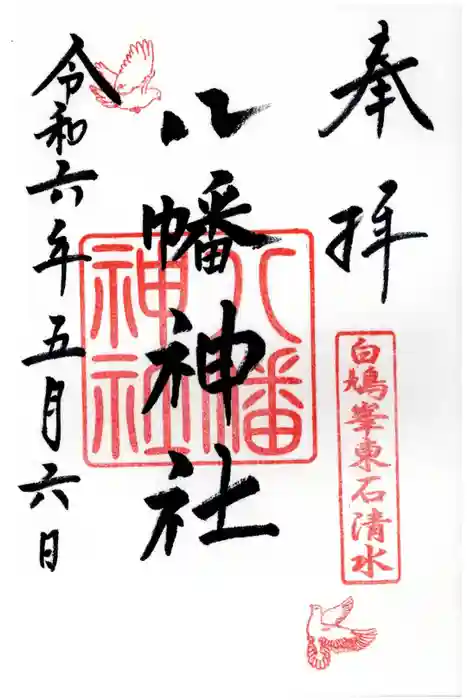 奉拝
白鳩峯東石清水
八幡神社
八幡
神社
令和六年五月六日